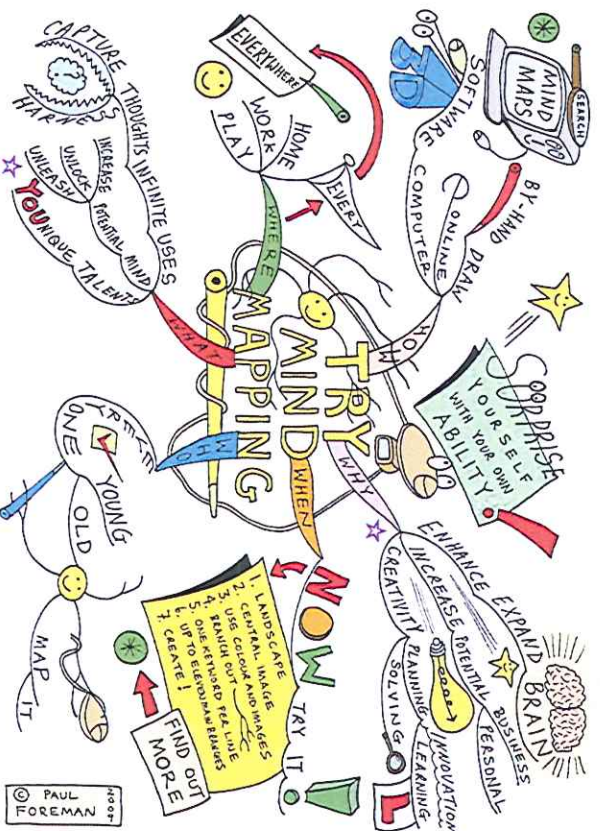 TRY
MIND
MAPPING
HOW
BY-HAND DRAW
ONLINE
COMPUTER
SOFTWARE
3D
MIND
MAPS
SEARCH
YOURSELF
WITH YOUR OWN
ABILITY
WHY
ENHANCE EXPAND
BRAIN
INCREASE POTENTIAL BUSINESS
PERSONAL
CREATIVITY PLANNING INNOVATION
LEARNING
SOLVING
L
WHEN
NOW TRY IT
1. LANDSCAPE
2. CENTRAL IMAGE
3. USE COLOUR AND IMAGES
4. BRANCH OUT
5. ONE KEYWORD PER LINE
6. UP TO ELEVEN MAIN BRANCHES
7. CREATE!
FIND OUT
MORE
WHO
ONE
YOUNG
OLD
MAP IT
WHAT
INFINITE USES
CAPTURE THOUGHTS
HARNESS
INCREASE POTENTIAL MIND
UNLOCK
UNLEASH
YOUNIQUE TALENTS
WHERE
EVERY
HOME
WORK
PLAY
EVERYWHERE
© PAUL 2009
FOREMAN